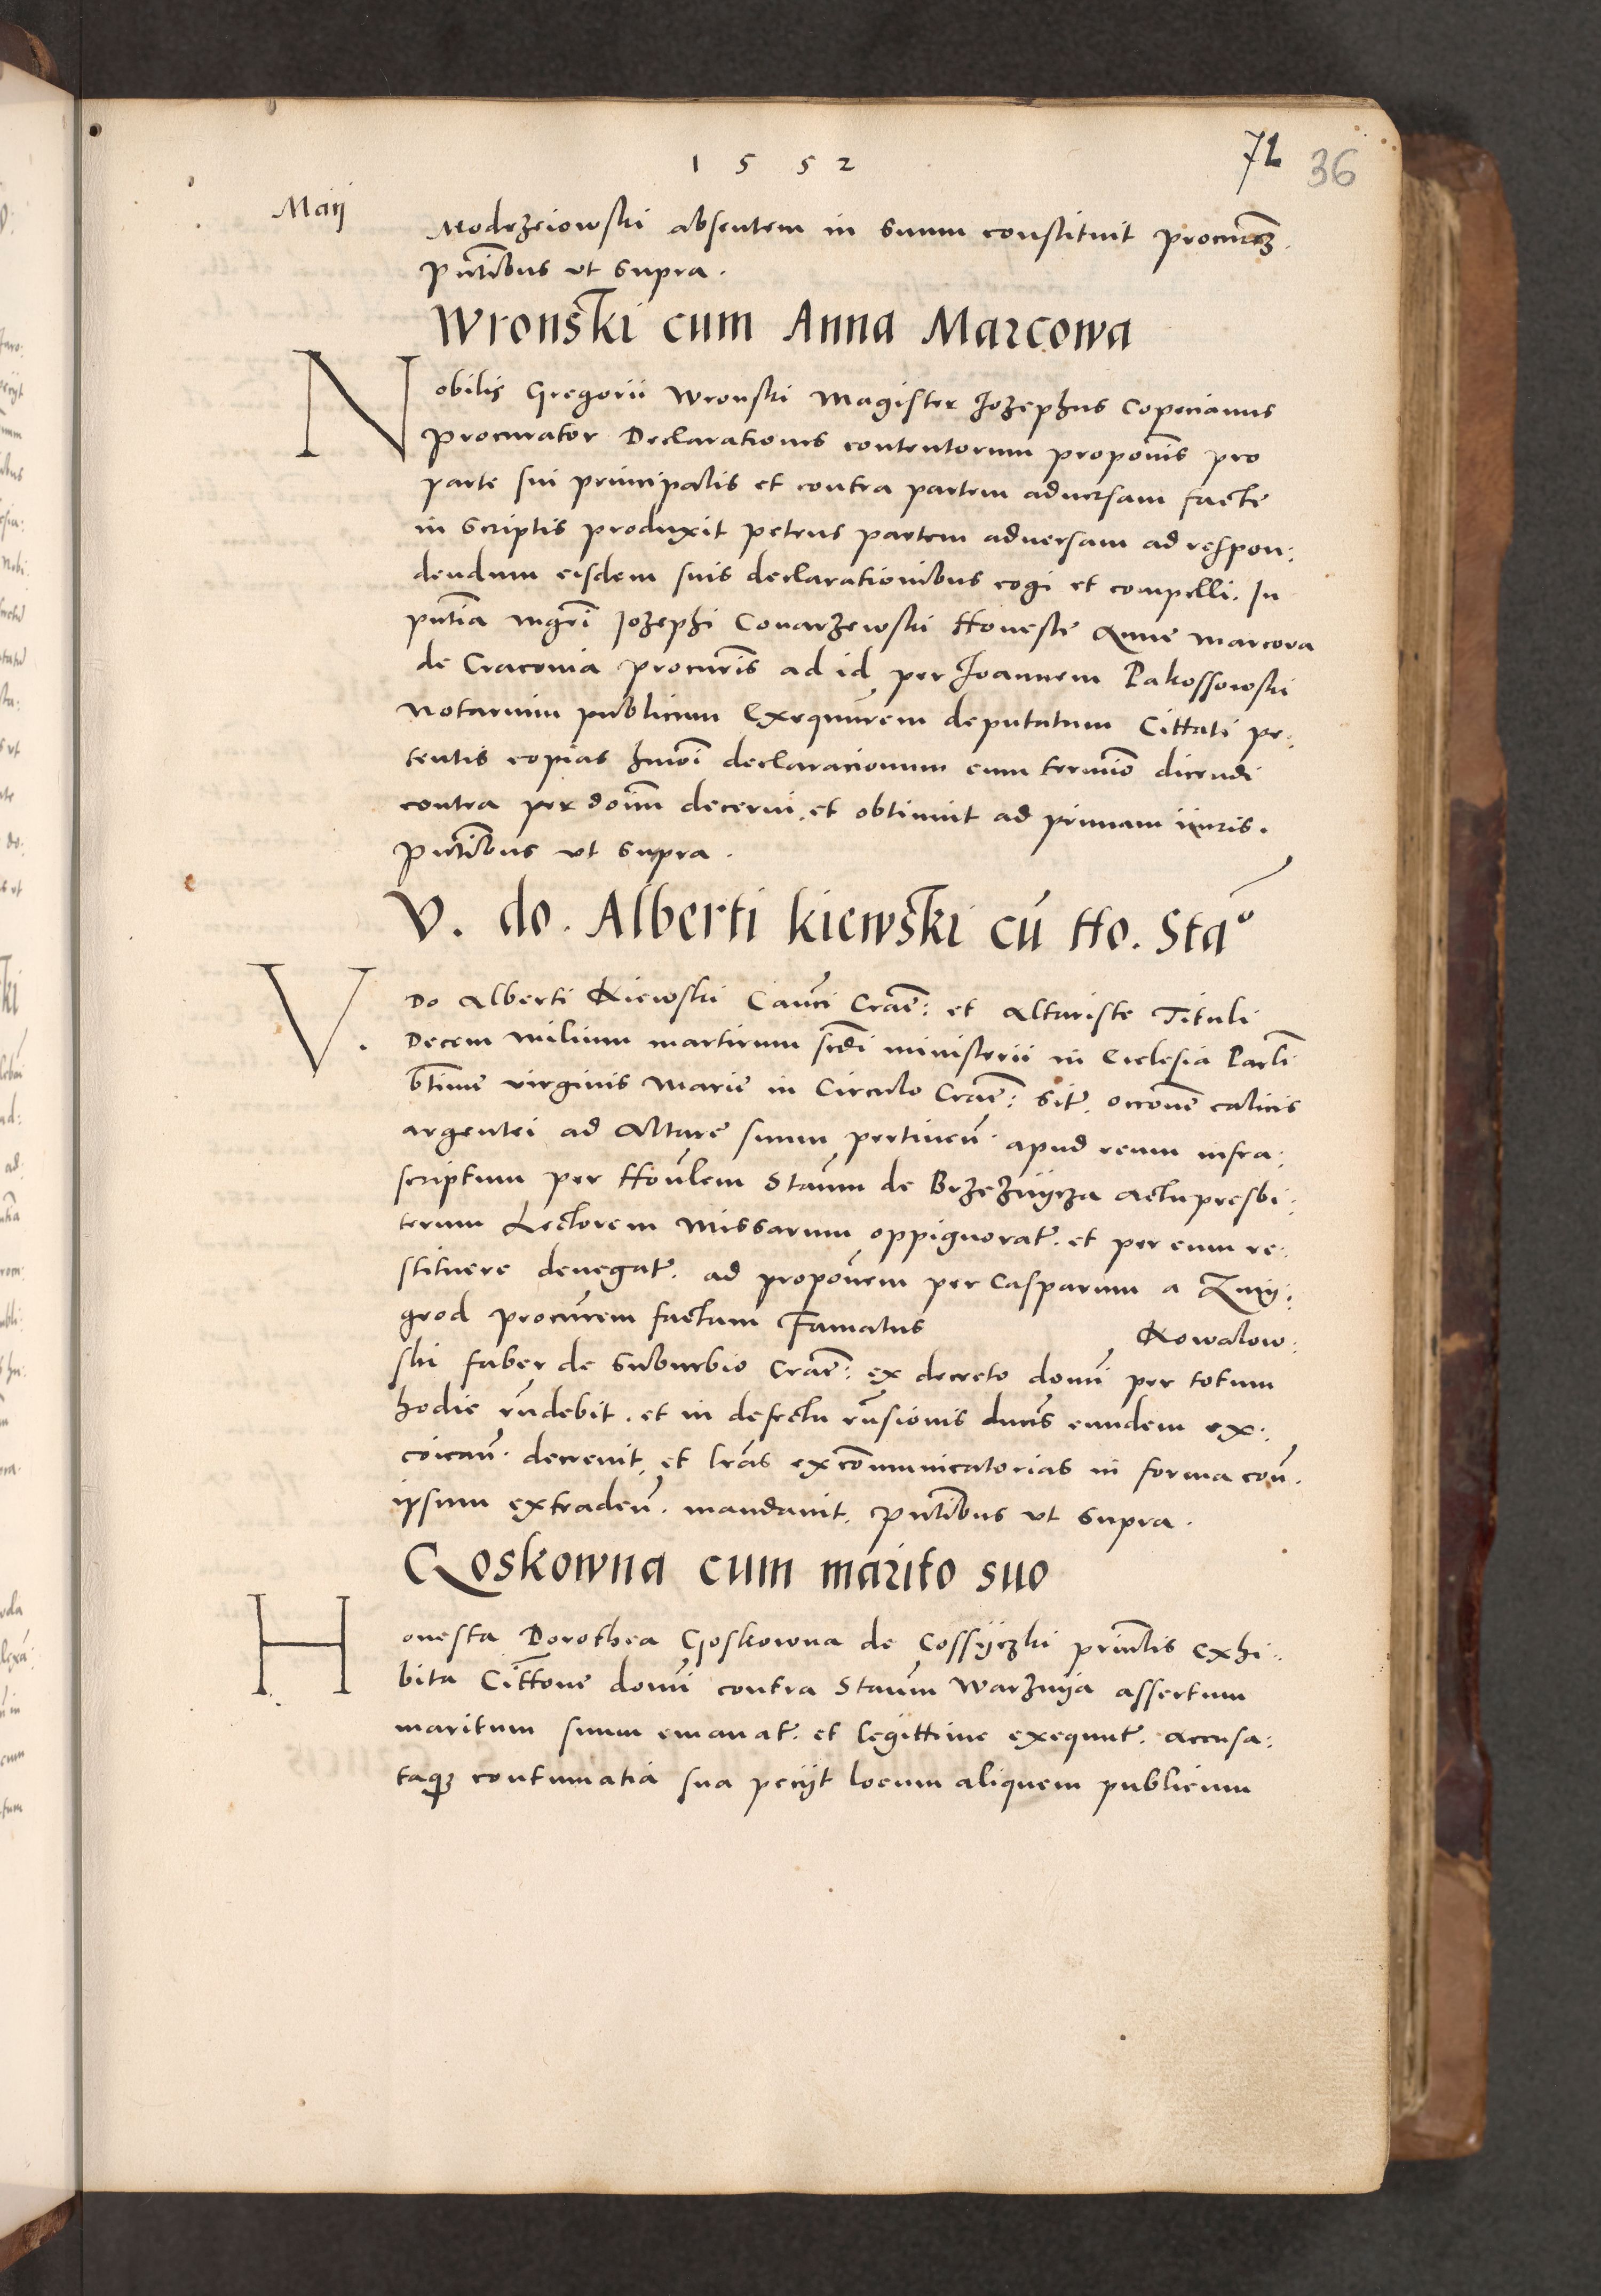 1 5 5 2
72 36
Maij
Modrzeiowski absentem in suum constituit procurez.
pntibus ut supra.
Wronski cum Anna Marcowa
Nobilis Gregorii Wronski Magister Jozephus Copecianus
procurator Declarationes contentorum proponis pro
parte sui principalis et contra partem adversam facte
in scriptis produxit petens partem adversam ad respon:
dendum eisdem suis declarationibus cogi et compelli. In
pntia mgri Jozephi Conarzewski Honeste Anne Marcova
de Cracovia procuris ad id per Joannem Pakossowski
Notarium publicum Exequurem deputatum Cittati pe:
tentis copias hmoi declaracionum cum termino dicendi
contra per donm decerni et obtinuit ad primam iuris.
pntibus ut supra.
V. do. Alberti Kiewski cu Ho. Sta°
V. Do Alberti Kiewski Canci Crac: et Altariste Tituli
Decem milium martirum scdi ministerii in Ecclesia Parli
btime virginis Marie in Circulo Crac: sit. occone calicis
argentei ad Altare suum pertinen. apud reum infra:
scriptum per Honlem Staum de Brzezniycza actu presbi:
terum Lectorem Missarum oppignorat. et per eum re:
stituere denegat. ad proponem per Casparum a Zmij:
grod procurem factam Famatus Kowalow:
ski faber de suburbio Crac: ex decreto domi per totum
hodie rndebit. et in defectu rnsionis ducis eundem ex:
coican. decrevit et lras excommunicatorias in forma con.
ipsum extraden. mandavit. pntibus ut supra.
Goskowna cum marito suo
Honesta Dorothea Goskowna de Cossyczki printis exhi:
bita Cittone domi contra Staum Warzniya assertum
maritum suum emanat. et legittime exequut. accusa:
taque contumatia sua peciit locum aliquem publicum